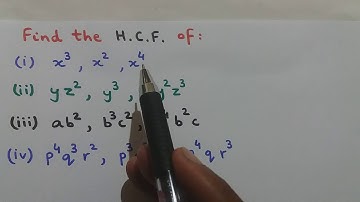 Find the H.C.F. of:
(i) x³, x², x⁴
(ii) yz², y³, y²z³
(iii) ab², b³c², b²c
(iv) p⁴q³r², p³ p⁴qr³